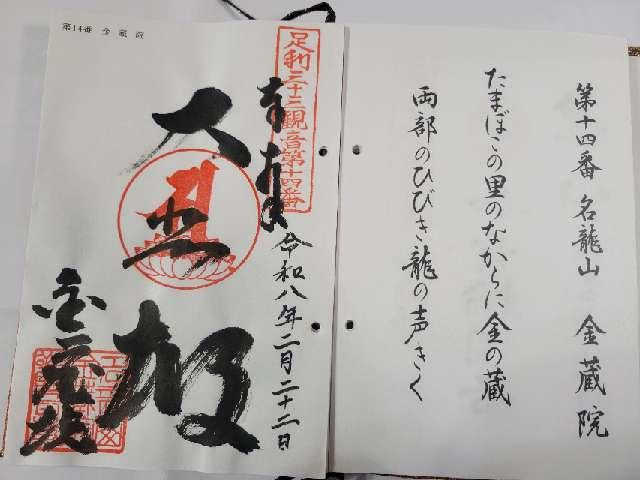 第十四番 名龍山 金蔵院
たまぼこの里のなからに金の蔵
両部のひびき龍の声きく
第14番 金蔵院
足利三十三観音第十四番
奉拝
令和八年二月二十二日
大悲殿
金蔵院